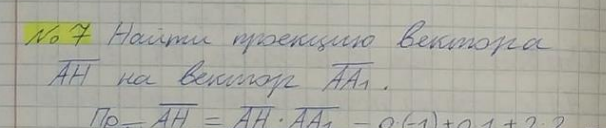 № 7 Найти проекцию вектора
AH на вектор AA₁.
Пр AH = AH · AA₁ = 0·(-1)+0·1+2·2